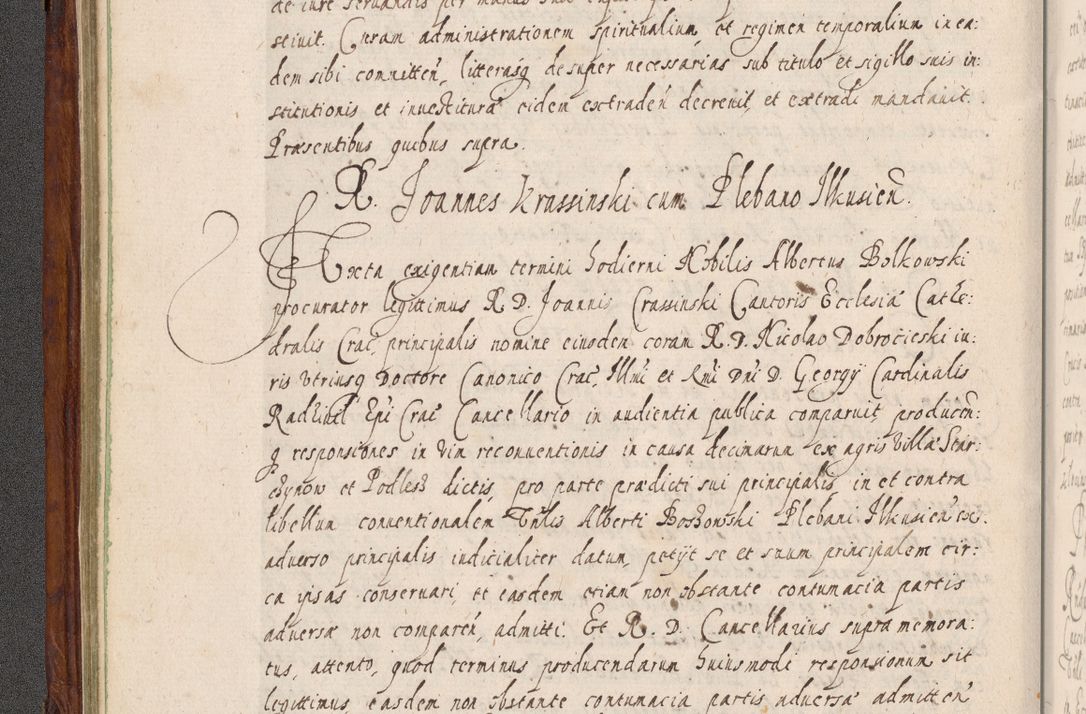 de iure servandis per manus suæ
stiuit. Curam administrationem spiritualium et regimen temporalium in ea:
dem sibi committeñ, litterasq desuper necessarias sub titulo et sigillo suis in:
stitutionis et inuestituræ eidem extradeñ decreuit, et extradi mandauit.
Præsentibus quibus supra.
R. Joannes Krassinski cum Plebano Ilkusieñ.
Iuxta exigentiam termini hodierni Nobilis Albertus Bolkowski
procurator legittimus R. D. Joannis Crassinski Cantoris Ecclesiæ Cathe:
dralis Crac, principalis nomine eiusdem coram R. D. Nicolao Dobrocieski iu:
ris utriusq Doctore Canonico Crac, Illmi et Rmi Dni D. Georgy Cardinalis
Radziuil Epi Crac Cancellario in audientia publica comparuit, produceñ:
q responsiones in vim reconuentionis in causa decimarum ex agris villæ Star:
czynow et Podlesz dictis, pro parte prædicti sui principalis, in et contra
libellum conuentionalem Vnlis Alberti Boszowski Plebani Ilkusieñ ex
aduerso principalis iudicialiter datum, petijt se et suum principalem cir:
ca ipsas conseruari, et easdem etiam non obstante contumacia partis
aduersæ non compareñ, admitti. Et R. D. Cancellarius supra memora:
tus, attento, quod terminus producendarum huiusmodi responsionum sit
legittimus, easdem non obstante contumacia partis aduersæ admitteñ